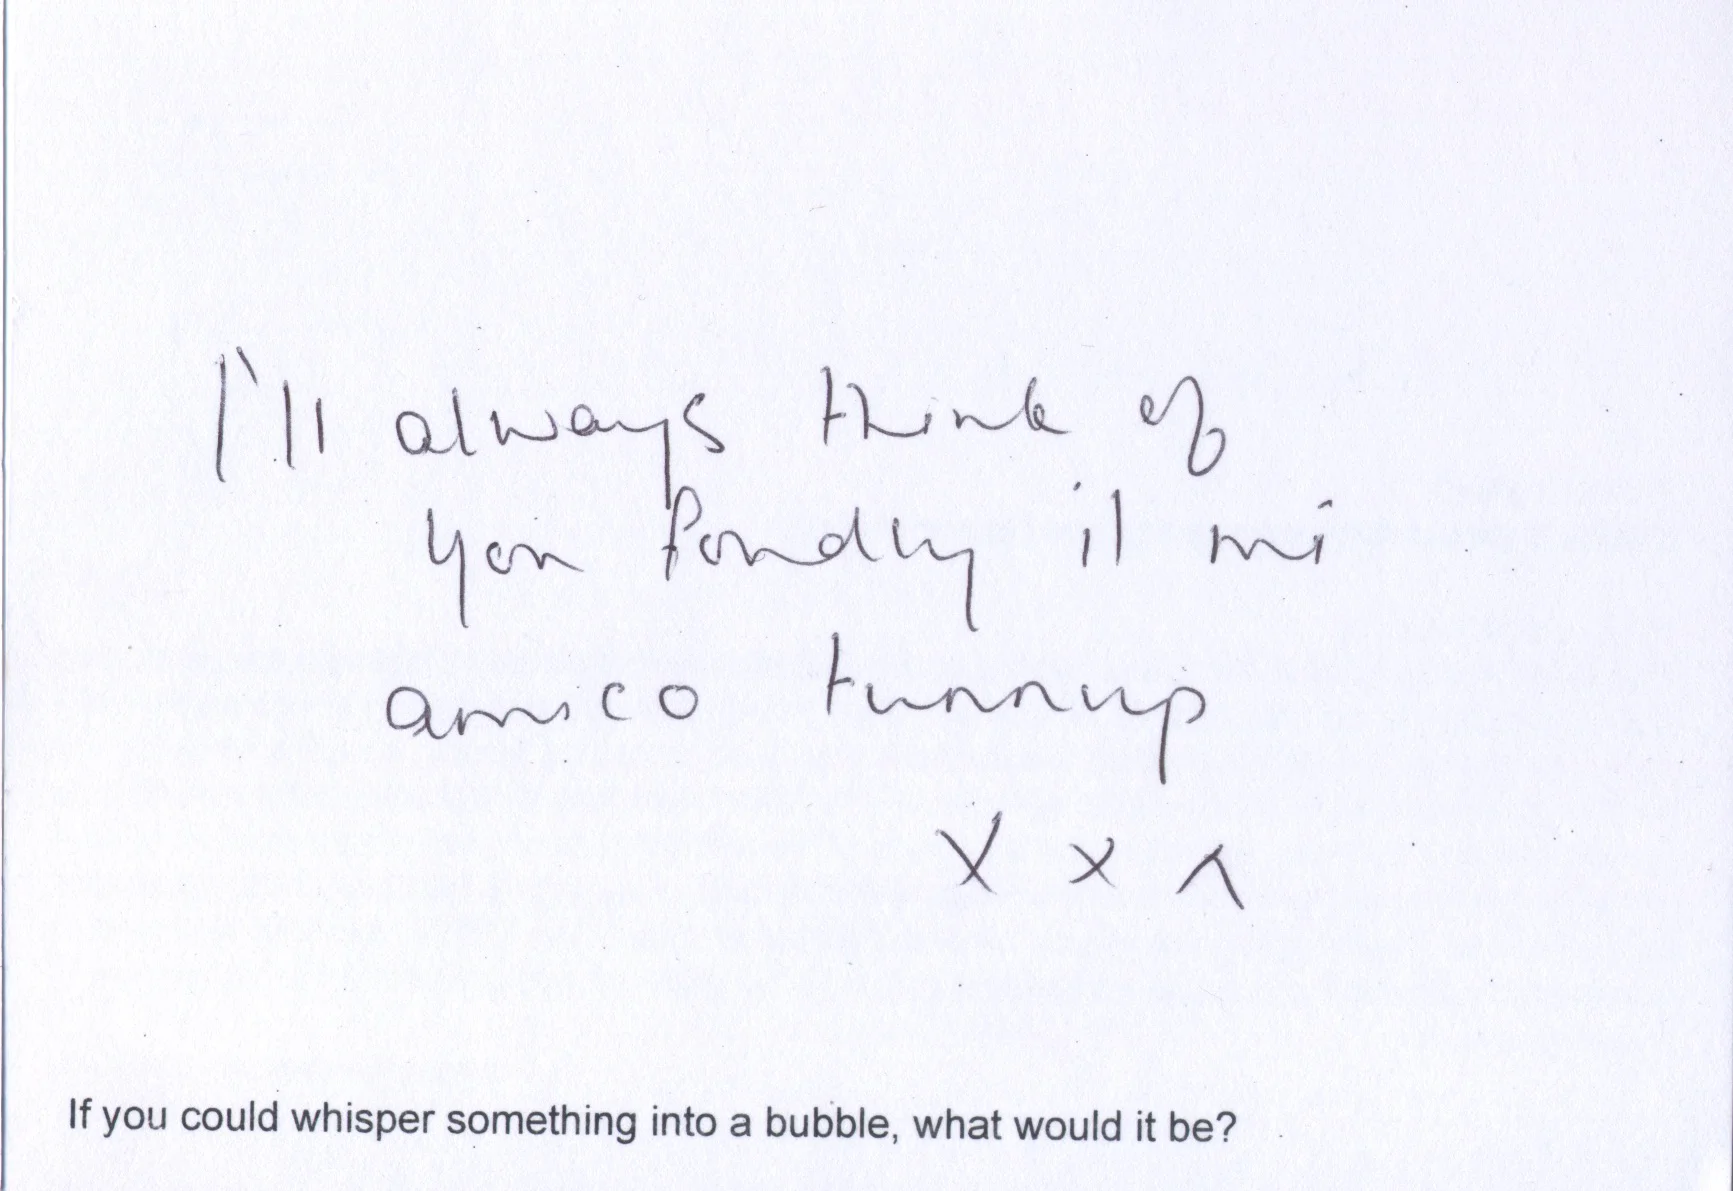 I'll always think of
you fondly il mi
amico turnnup
x x x
If you could whisper something into a bubble, what would it be?